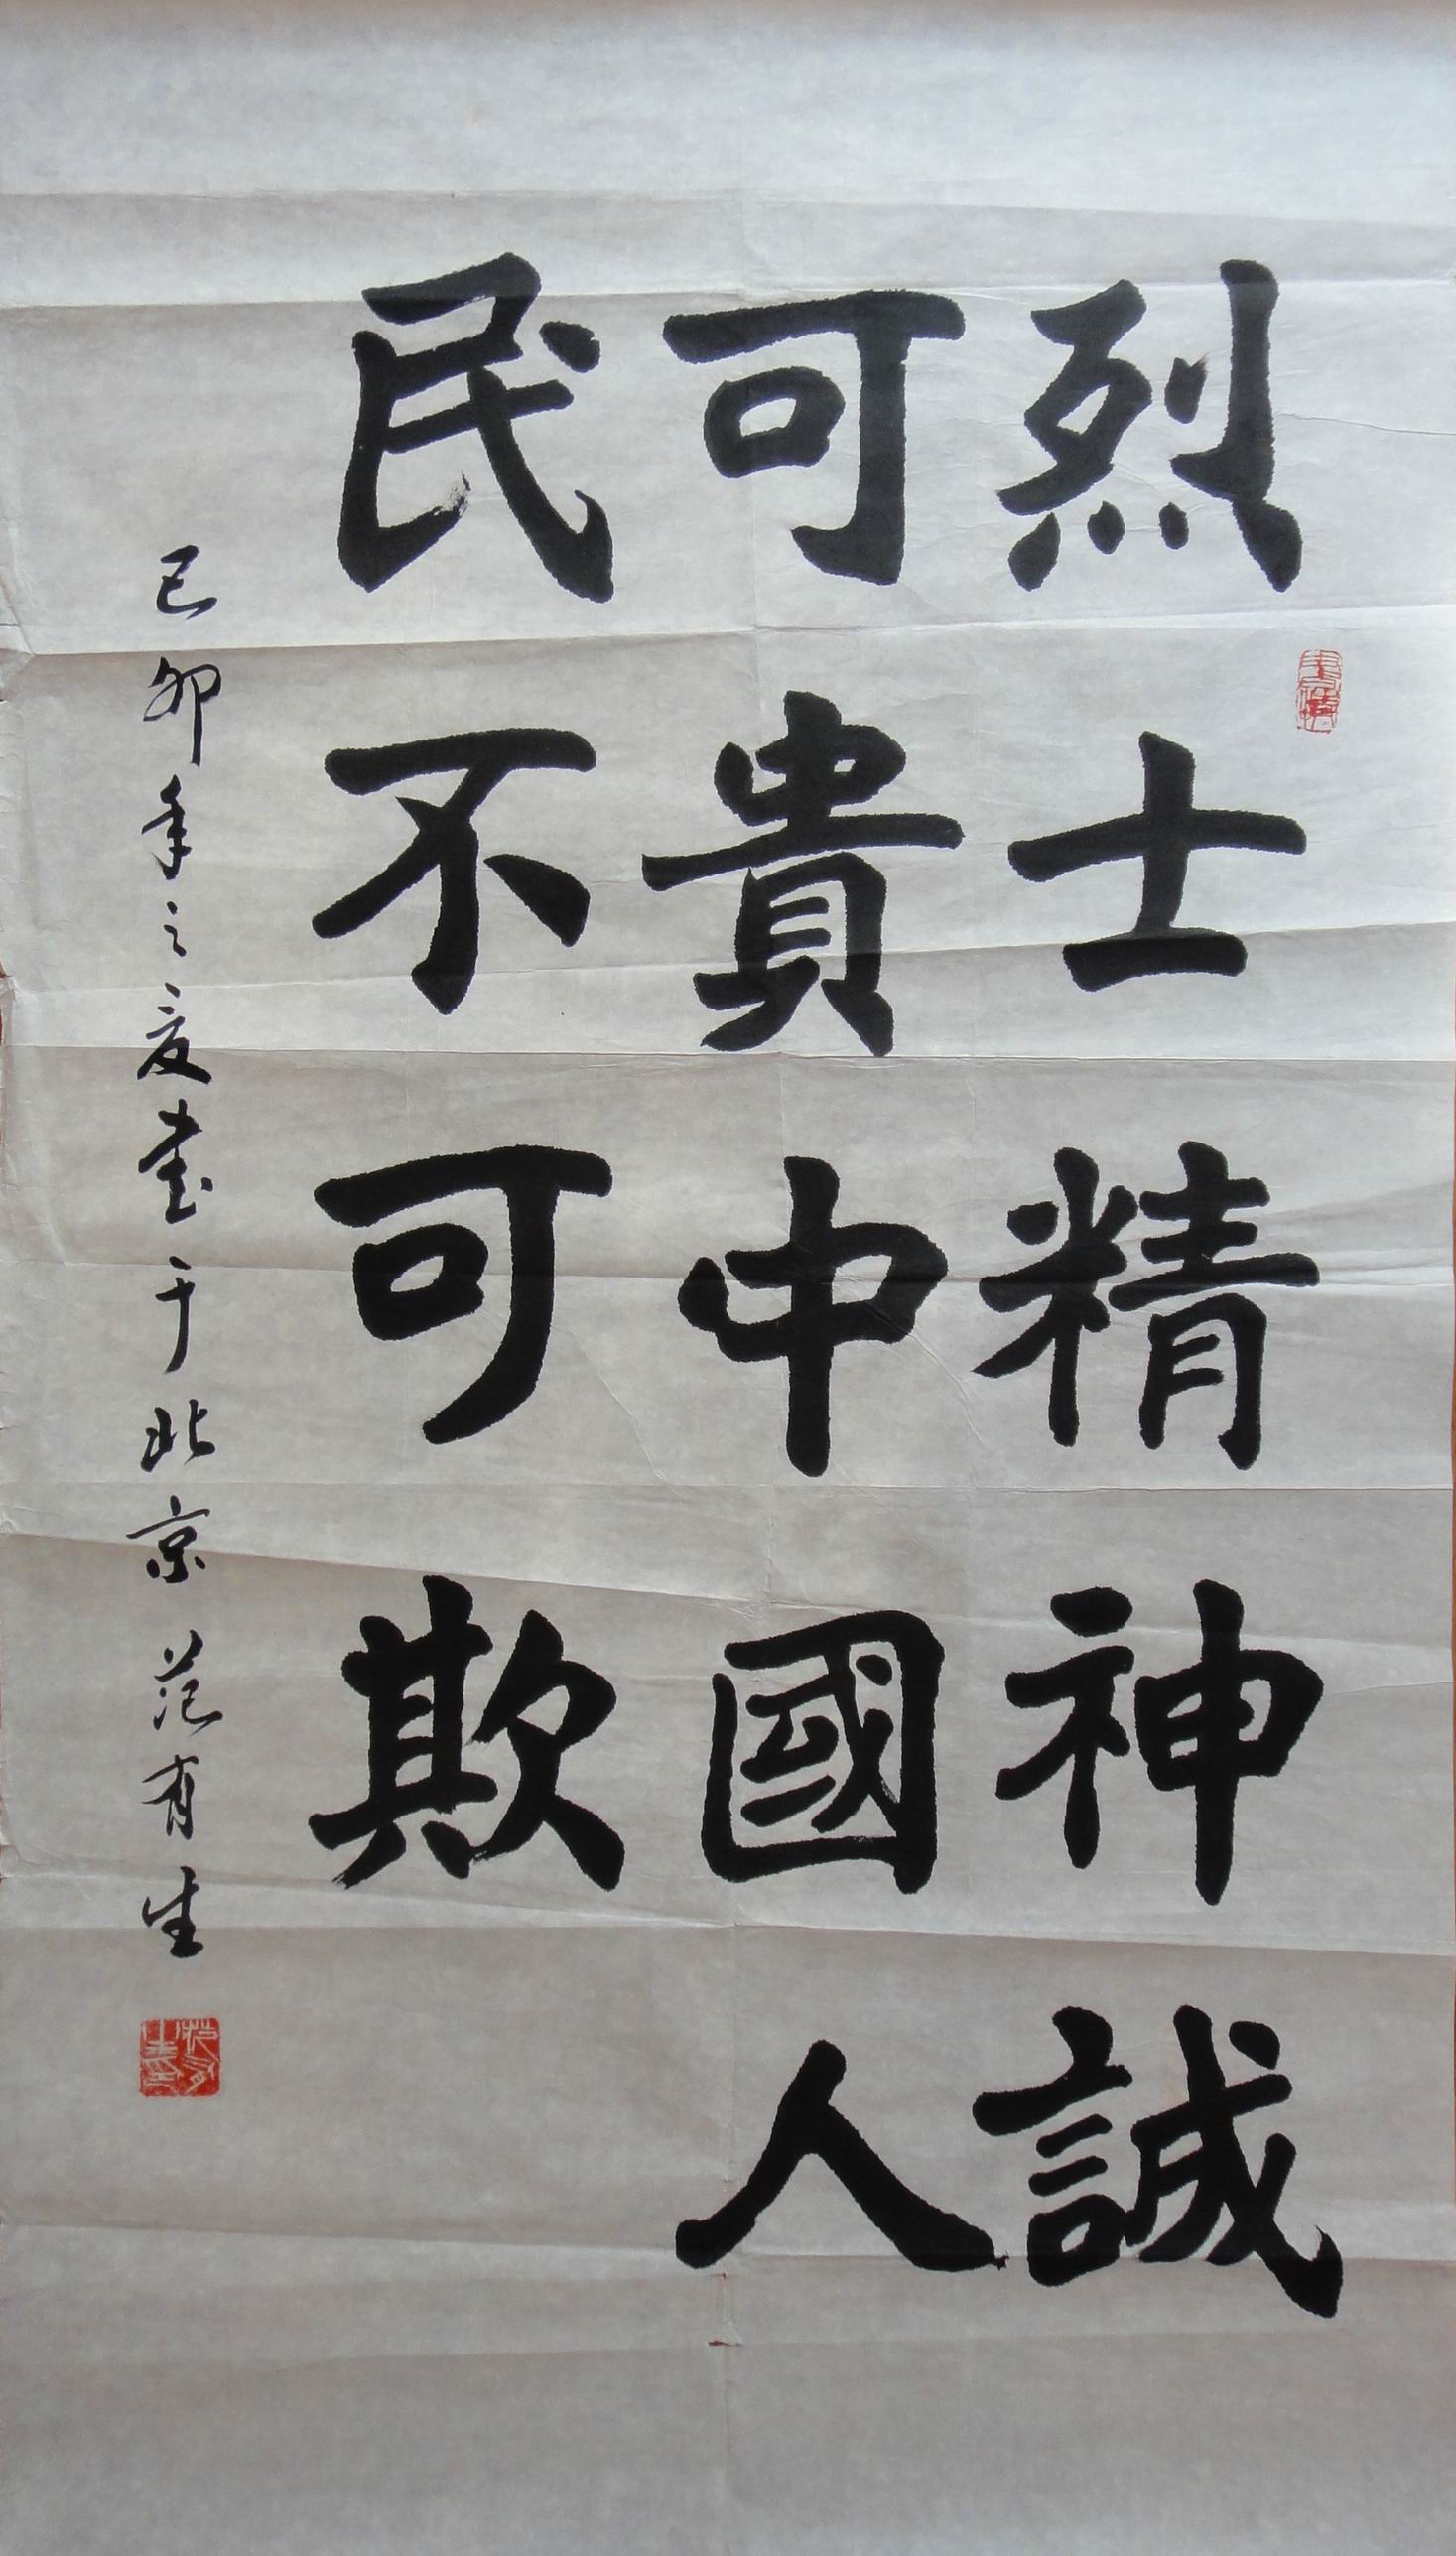 烈士精神誠
可貴中國人
民不可欺
己卯年之夏書于北京范有生